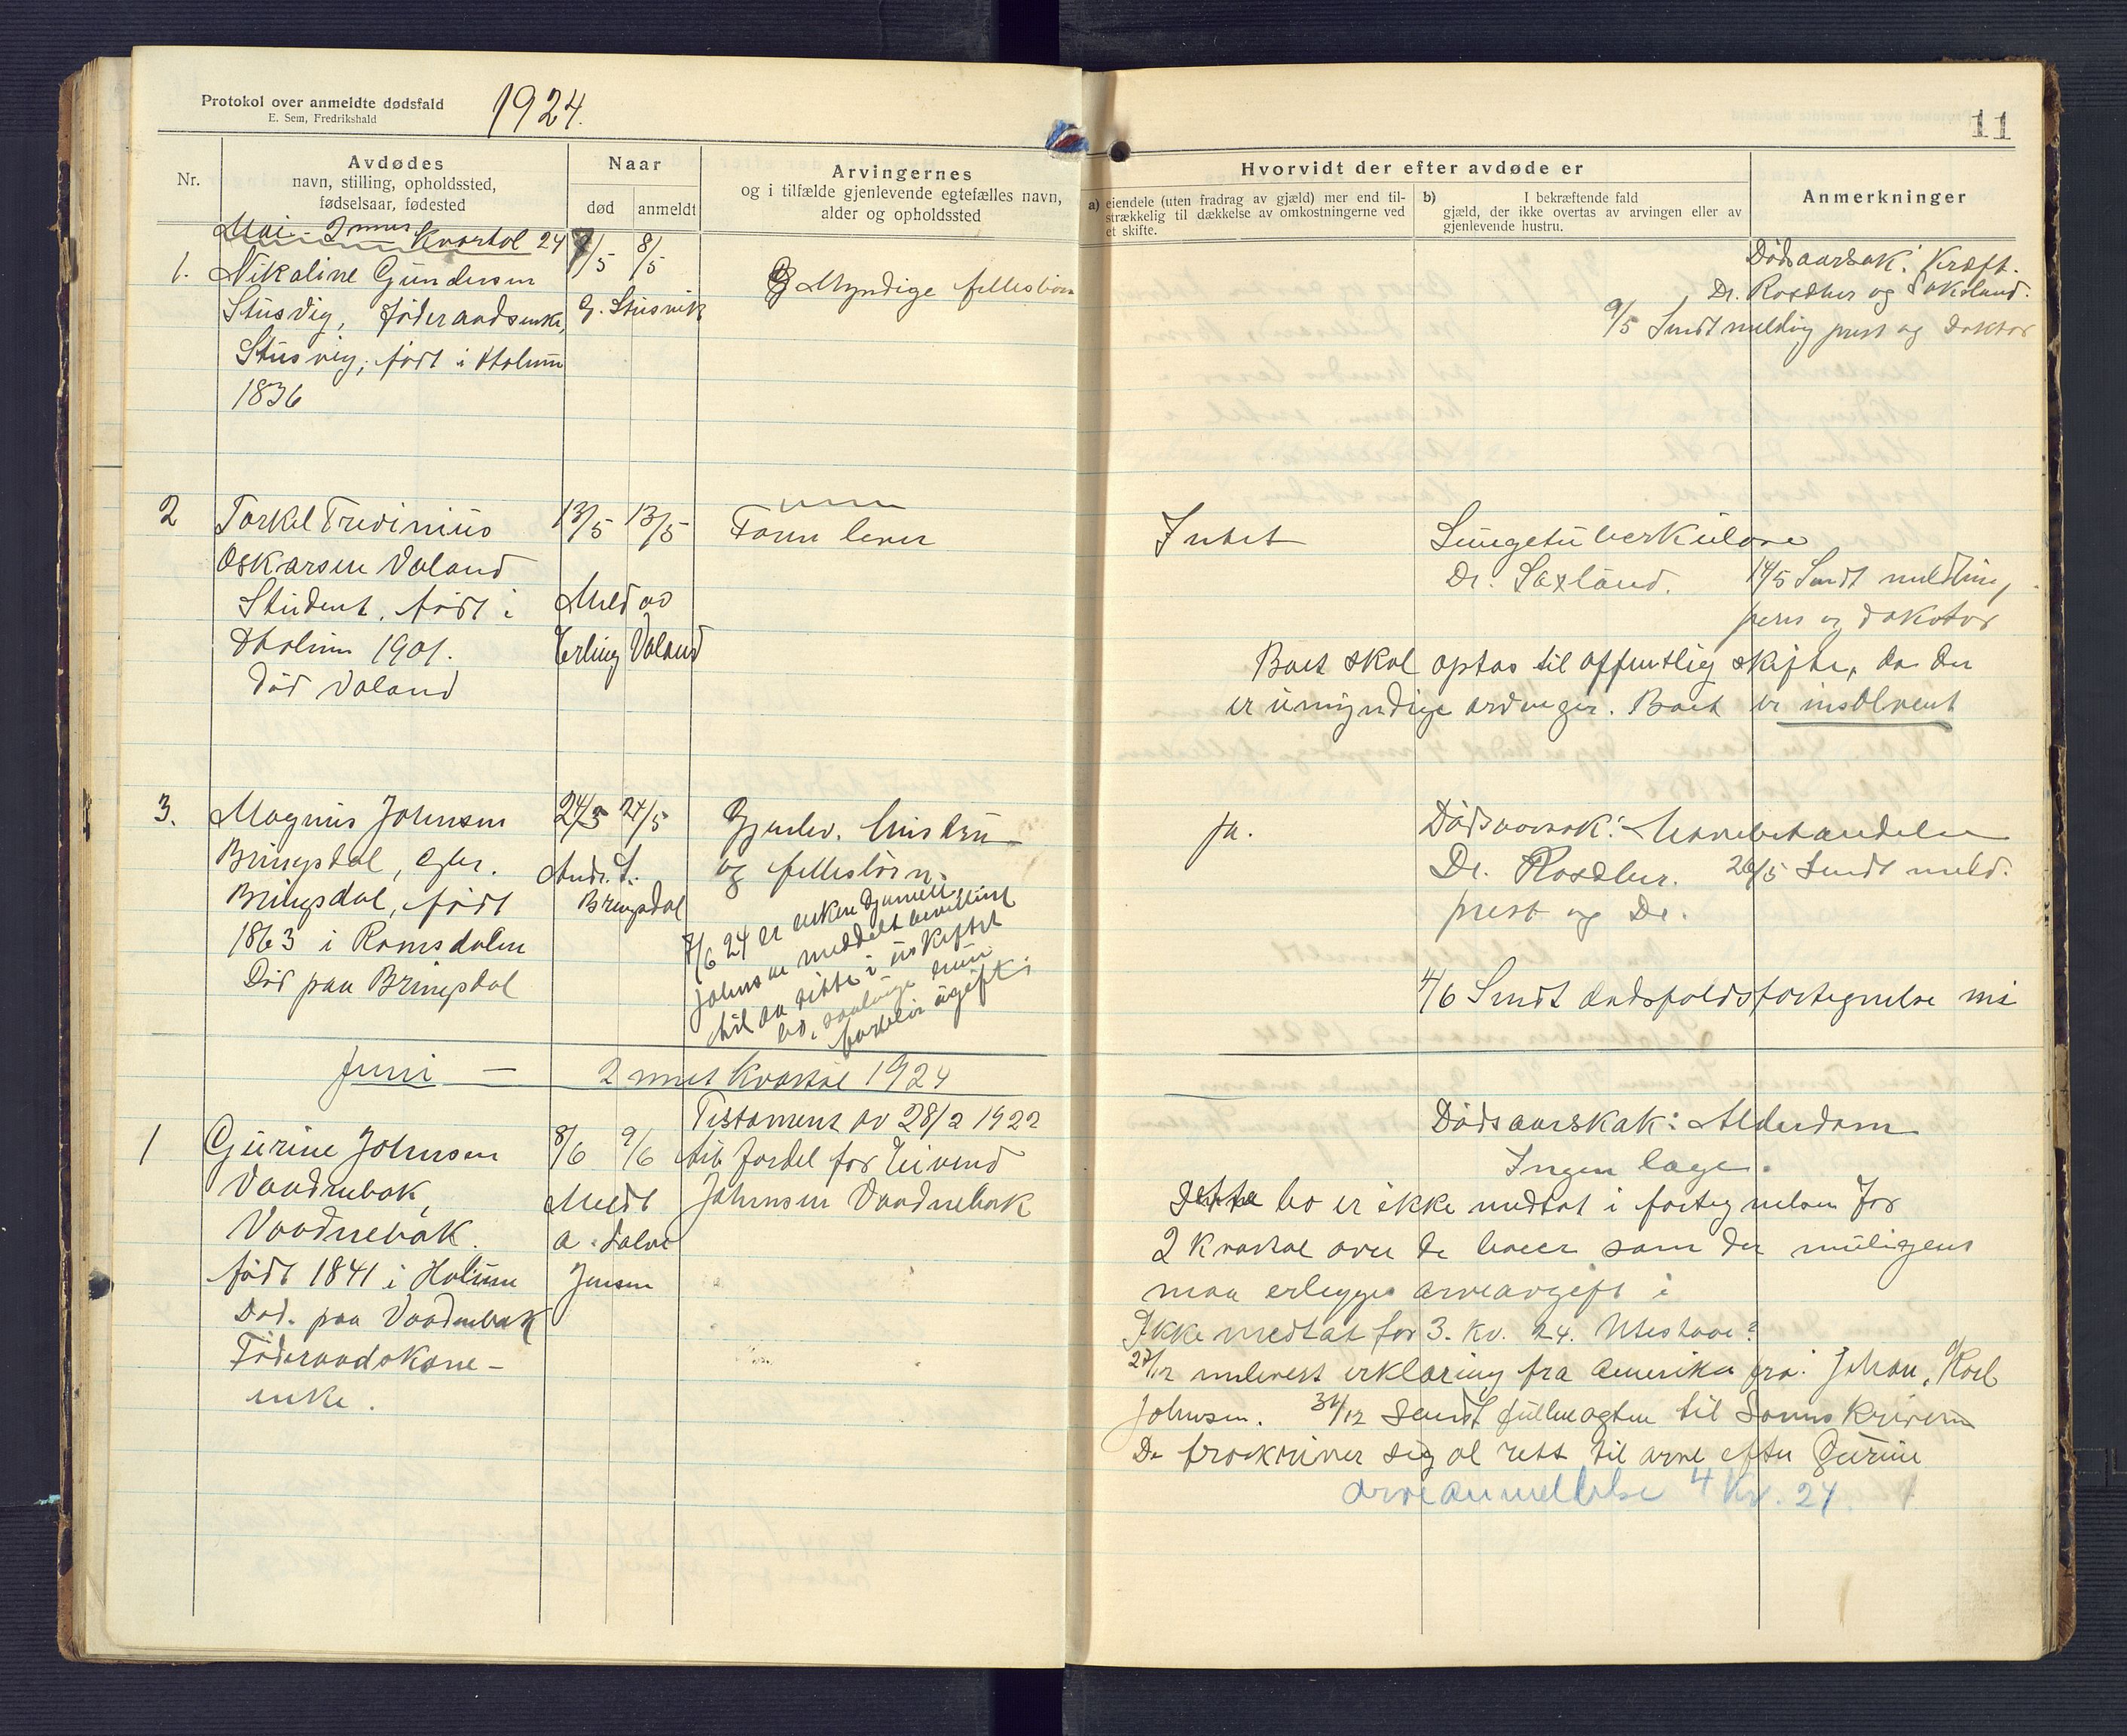 Protokol over anmeldte dødsfald
E. Sem, Fredrikshald
1924.
Nr.
Avdødes
navn, stilling, opholdssted,
fødselsaar, fødested
Naar
død
anmeldt
Arvingernes
og i tilfælde gjenlevende egtefælles navn,
alder og opholdssted
Mai - 2 Kvartal 24
1.
Nikoline Gundersen
Stusvig, føderaadsenke,
Stusvig, født i Holum
1836
7/5 8/5
G. Stusvik
Myndige fellesbørn
2
Torkel Trevinius
Oskarsen Valand
Student, født i
Holum 1901.
Død Valand
13/5 13/5
Meld av
Erling Valand
Forn lever
3.
Magnus Johnsen
Bringsdal, gbr.
Bringsdal, født
1863 i Romsdalen
Død paa Bringsdal
24/5 24/5
Andr. T.
Bringsdal
Gjenlev. hustru
og fellesbørn.
7/6 24 er enken Gunnell
Johnsen meddelt bevilling
til aa sitte i uskiftet
bo, saalænge hun
forblir ugift.
Juni — 2 net Kvartal 1924
1
Gurine Johnsen
Vaadnebak,
Vaadnebak.
født 1841 i Holum
Død. paa Vaadnebak
Føderaadskone -
enke.
8/6 9/6
Meldt
a. Salve
Jensen
Testament av 28/2 1922
til fordel for Eivind
Johnsen Vaadnebak
11
Hvorvidt der efter avdøde er
a) eiendele (uten fradrag av gjæld) mer end til-
strækkelig til dækkelse av omkostningerne ved
et skifte.
b) I bekræftende fald
gjæld, der ikke overtas av arvingen eller av
gjenlevende hustru.
Anmerkninger
Dødsaarsak: Kræft.
Dr. Rosdher og Saksland.
9/5 Sendt melding prest og Doktor
Intet
Lungetuberkulose
Dr. Saxland. 14/5 Sendt melding,
pres og doktor
Boet skal optas til offentlig skifte, da der
er umyndige arvinger. Boet er insolvent
ja.
Dødsaarsak:
Dr. Rosdher. 26/5 Sendt meld.
prest og Dr.
4/6 Sendt dødsfaldsfortegnelse mai
Dødsaarskak: Alderdom
Ingen læge.
Dette bo er ikke medtat i fortegnelsen for
2 Kvartal over de boer som der muligens
maa erlegges arveavgift i
Ikke medtat for 3. Kv. 24. Utestaae?
27/12 innlevert erklæring fra Amerika fra: Johan, Karl
Johnsen. 31/12 Sendt fullmagten til Sorenskriveren
De fraskriver sig al rett til arv efter Gurine
arveanmeldelse 4 Kv. 24.